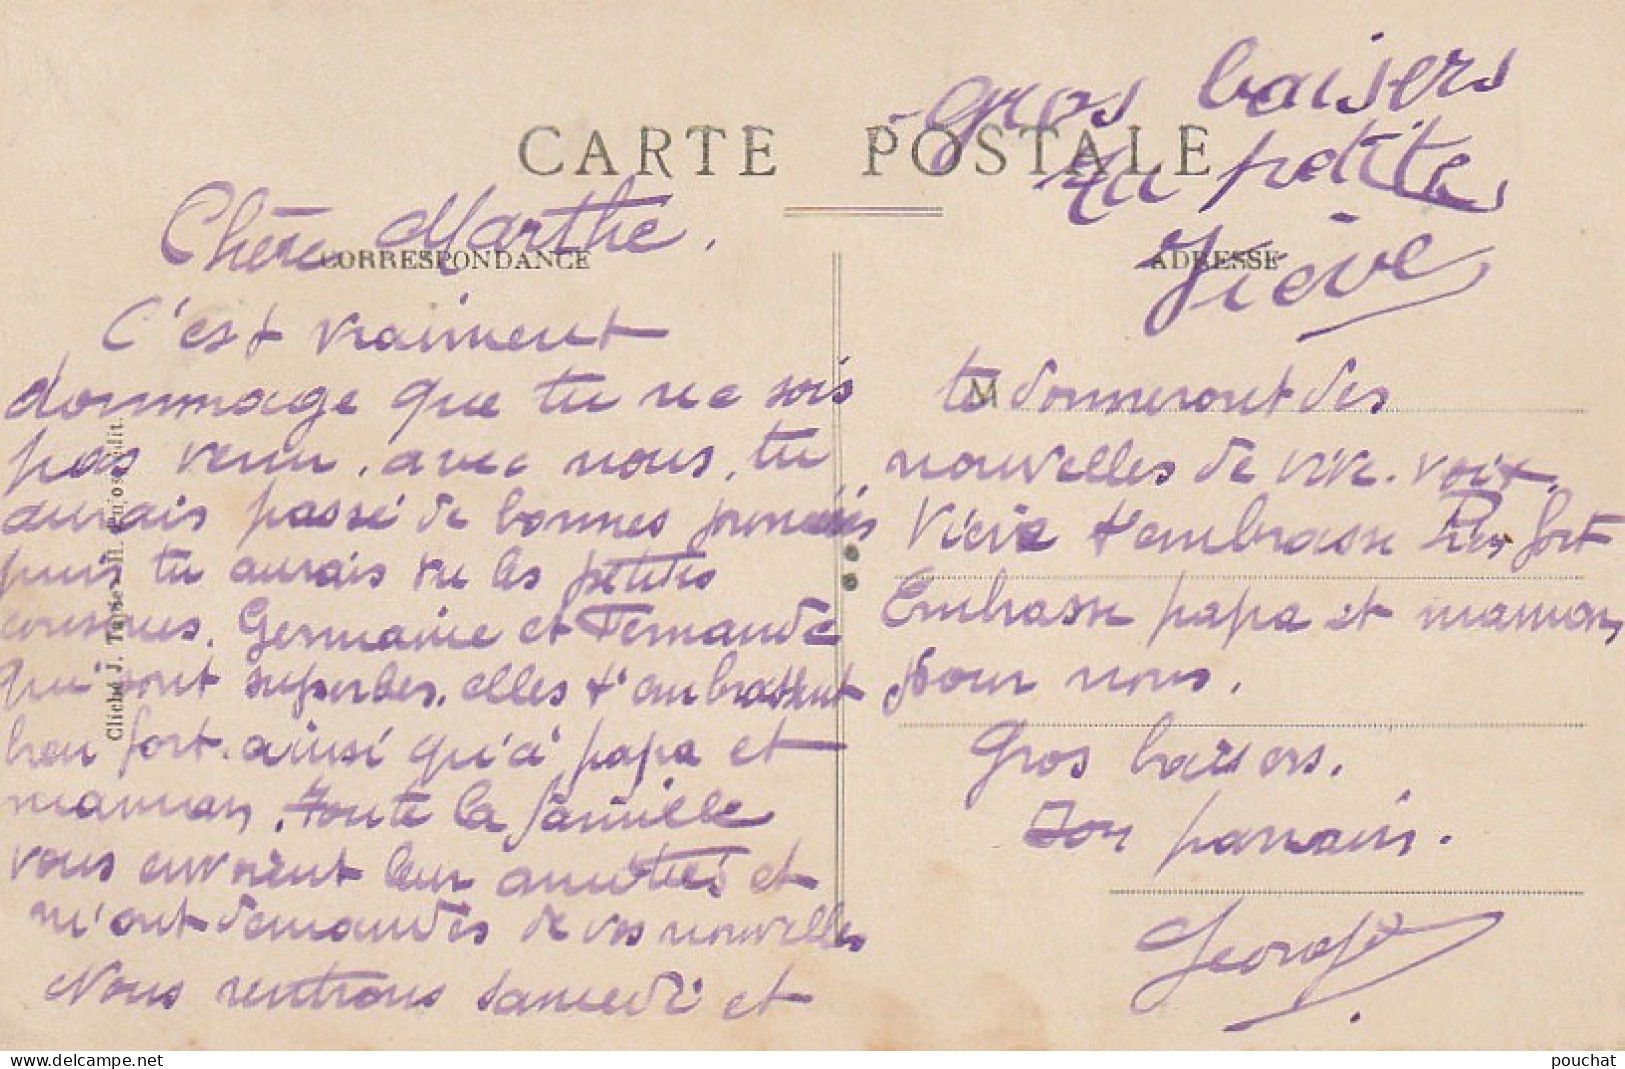 CARTE POSTALE
CORRESPONDANCE
ADRESSE
Gros baisers
Ta petite
Viève
Chère Marthe.
C'est vraiment
dommage que tu ne sois
pas venu. avec nous, tu
aurais passé de bonnes journées
puis tu aurais vu les petites
cousines. Germaine et Fernande
qui sont superbes. elles t'embrassent
bien fort. ainsi qu'à papa et
maman. Toute la famille
vous envoient leur amitiés et
m'ont demandés de vos nouvelles
Nous rentrons samedi et
M
te donneront des
nouvelles de vive. voix.
Viève t'embrasse bien fort
Embrasse papa et maman
pour nous.
Gros baisers.
Ton parrain.
Georges
Cliché J. Tapie H. Pujos édit.
delcampe.net
pouchat